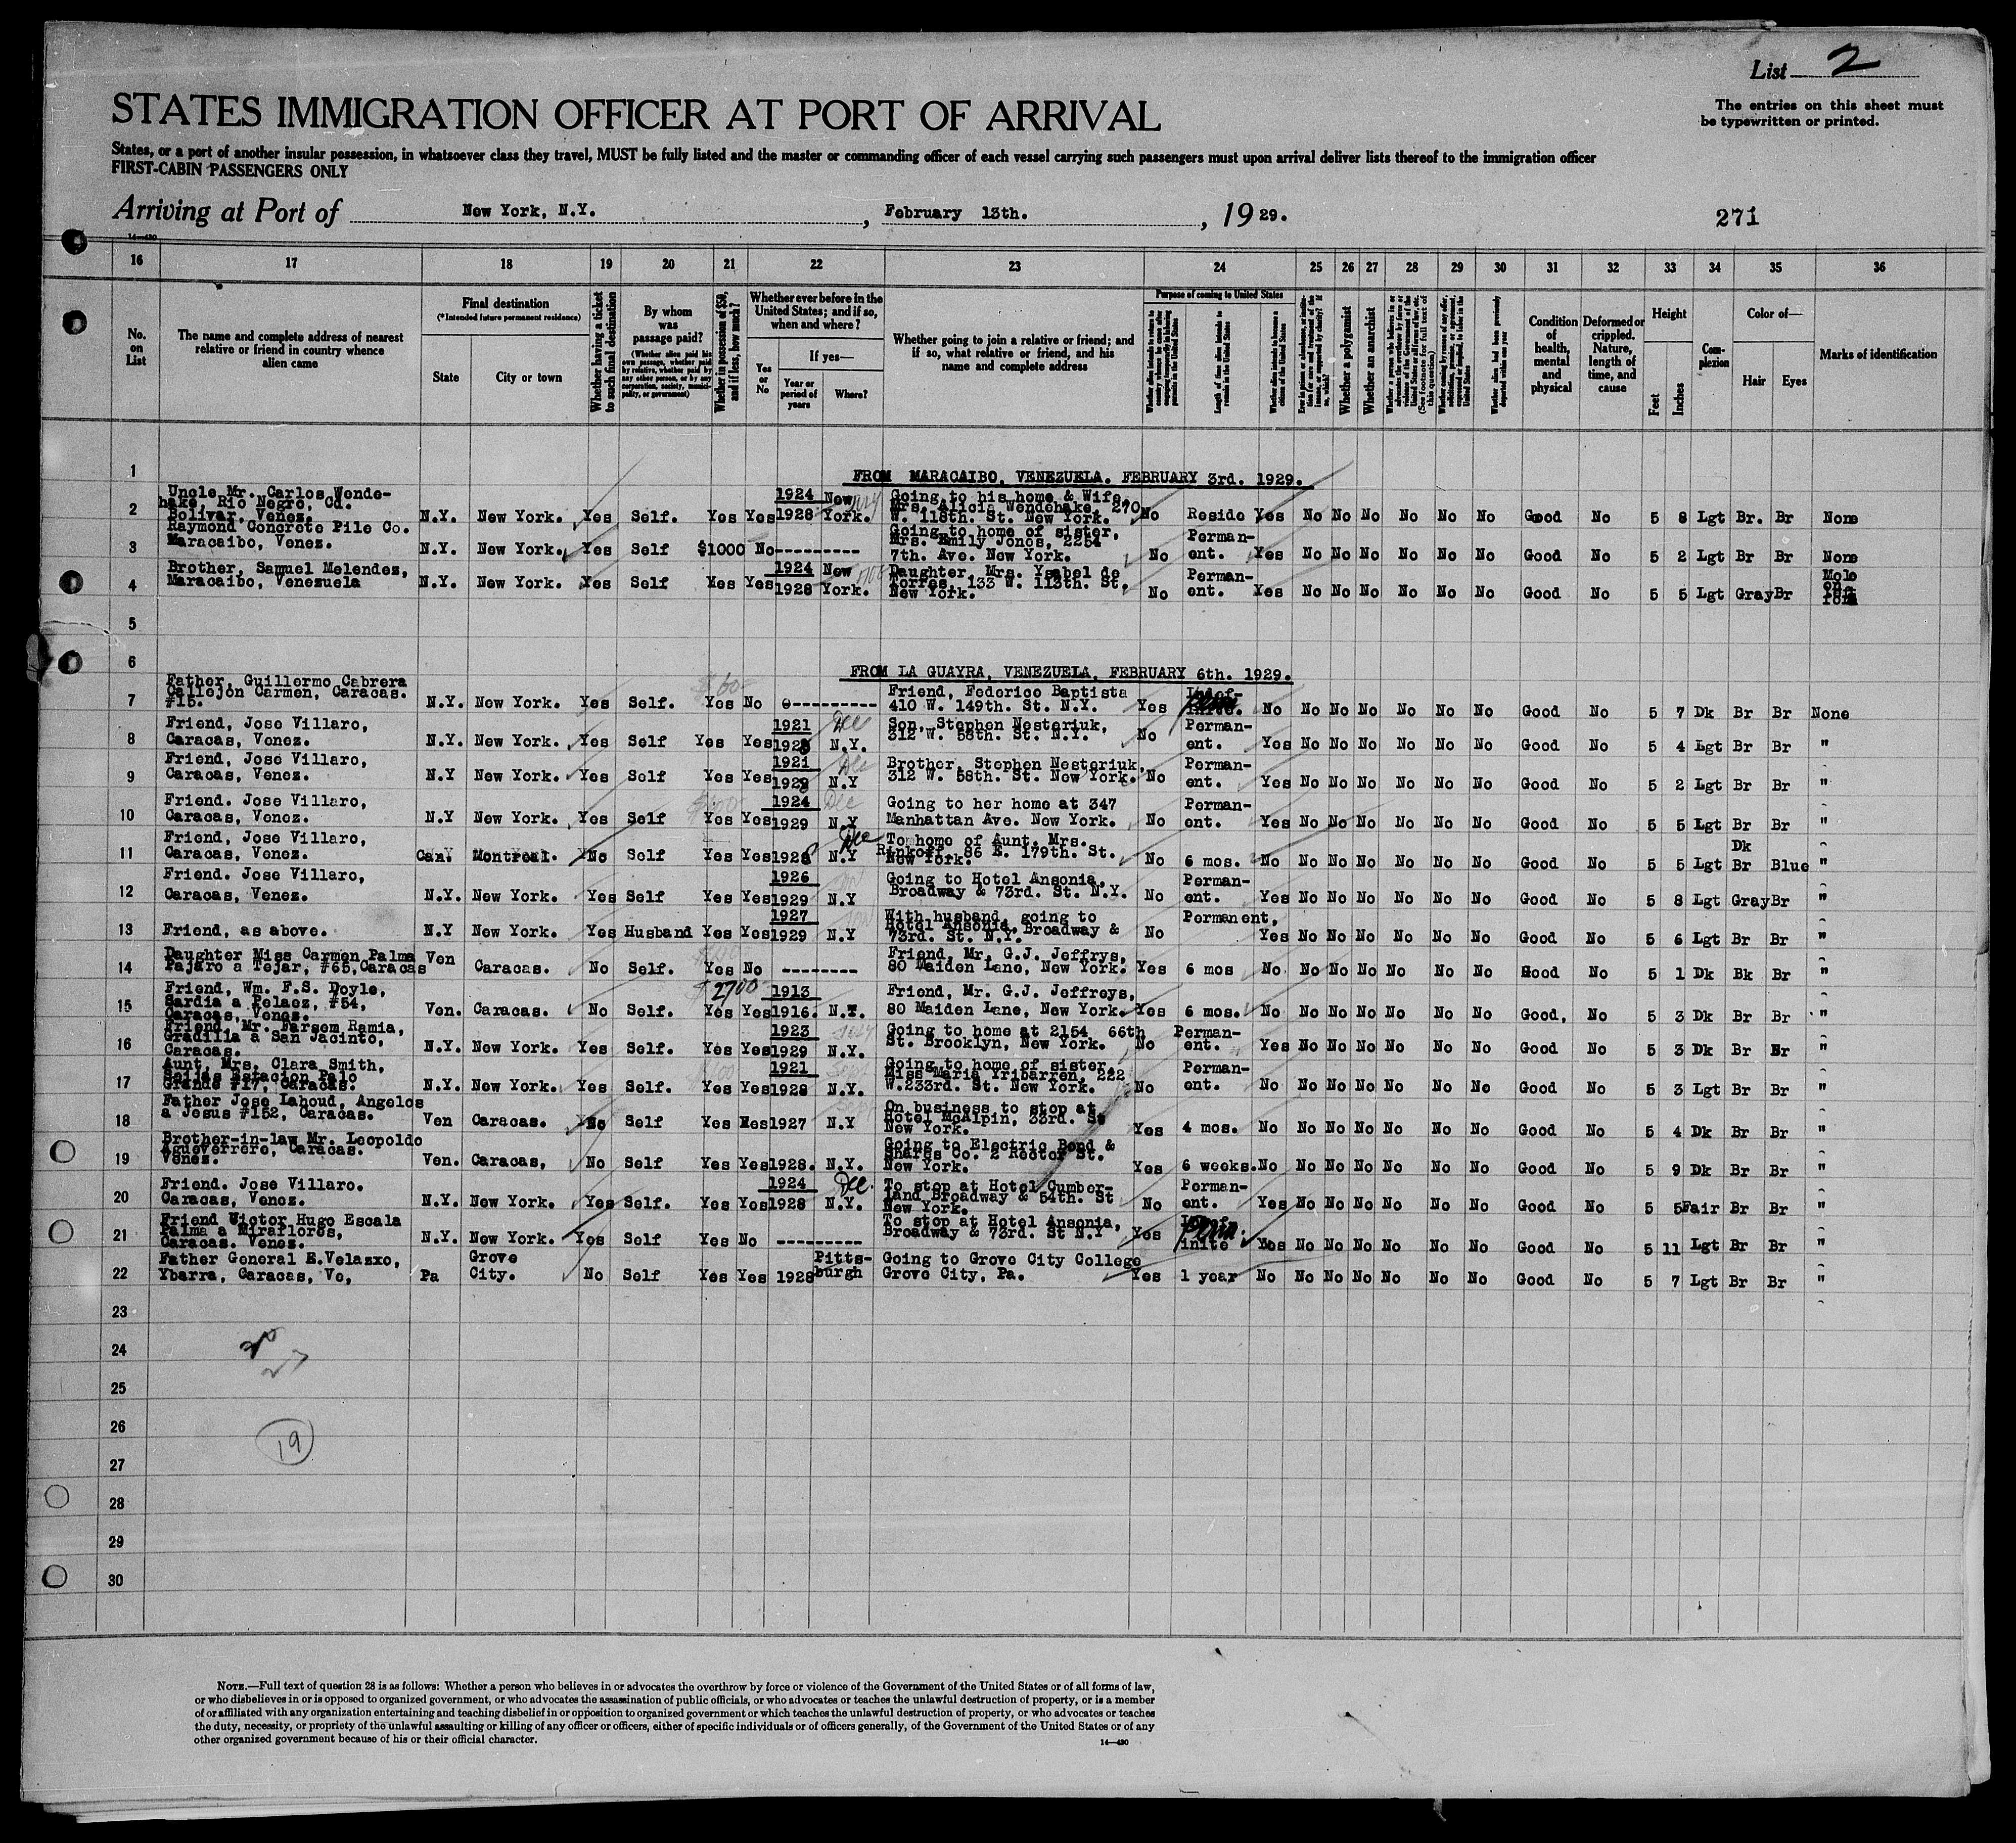 List 2
The entries on this sheet must
be typewritten or printed.
STATES IMMIGRATION OFFICER AT PORT OF ARRIVAL
States, or a port of another insular possession, in whatsoever class they travel, MUST be fully listed and the master or commanding officer of each vessel carrying such passengers must upon arrival deliver lists thereof to the immigration officer
FIRST-CABIN PASSENGERS ONLY
Arriving at Port of New York, N.Y. , February 13th. , 19 29.
271
14—430
16 17 18 19 20 21 22 23 24 25 26 27 28 29 30 31 32 33 34 35 36
No. on List
The name and complete address of nearest relative or friend in country whence alien came
Final destination
(*Intended future permanent residence)
State
City or town
Whether having a ticket to such final destination
By whom was passage paid?
(Whether alien paid his own passage, whether paid by relative, whether paid by any other person, or by any corporation, society, municipality, or government)
Whether in possession of $50, and if less, how much?
Whether ever before in the United States; and if so, when and where?
Yes or No
If yes—
Year or period of years
Where?
Whether going to join a relative or friend; and if so, what relative or friend, and his name and complete address
Purpose of coming to United States
Length of time alien intends to remain in the United States
Whether alien intends to become a citizen of the United States
Whether a polygamist
Whether an anarchist
Condition of health, mental and physical
Deformed or crippled. Nature, length of time, and cause
Height
Feet
Inches
Complexion
Color of—
Hair
Eyes
Marks of identification
1
FROM MARACAIBO, VENEZUELA. FEBRUARY 3rd. 1929.
2 Uncle Mr. Carlos Wendehake, Rio Negro, Cd. Bolivar, Venez. N.Y. New York. Yes Self. Yes Yes 1924 1928 New York. Going to his home & Wife, Mrs. Alicia Wendehake, 270 W. 118th. St. New York. No Reside Yes No No No No No No Good No 5 8 Lgt Br. Br None
3 Raymond Concrete Pile Co. Maracaibo, Venez. N.Y. New York. Yes Self $1000 No---------- Going to home of sister, Mrs. Emily Jones, 2254 7th. Ave. New York. No Permanent. Yes No No No No No No Good No 5 2 Lgt Br Br None
4 Brother, Samuel Melendez, Maracaibo, Venezuela N.Y. New York. Yes Self Yes Yes 1924 1928 New York. Daughter, Mrs. Ysabel de Torres, 133 W. 113th. St, New York. No Permanent. Yes No No No No No No Good No 5 5 Lgt Gray Br Mole on
5
6
FROM LA GUAYRA, VENEZUELA, FEBRUARY 6th. 1929.
7 Father, Guillermo Cabrera Callejon Carmen, Caracas. #15. N.Y. New York. Yes Self. Yes No ---------- Friend, Federico Baptista 410 W. 149th. St. N.Y. Yes No No No No No No No Good No 5 7 Dk Br Br None
8 Friend, Jose Villaro, Caracas, Venez. N.Y. New York. Yes Self Yes Yes 1921 Dec N.Y. Son, Stephen Nesteriuk, 312 W. 58th. St. N.Y. No Permanent. Yes No No No No No No Good No 5 4 Lgt Br Br "
9 Friend, Jose Villaro, Caracas, Venez. N.Y New York. Yes Self Yes Yes 1921 Dec N.Y Brother, Stephen Nesteriuk, 312 W. 58th. St. New York. No Permanent. Yes No No No No No No Good No 5 2 Lgt Br Br "
10 Friend. Jose Villaro, Caracas, Venez. N.Y New York. Yes Self Yes Yes 1924 1929 Dec N.Y Going to her home at 347 Manhattan Ave. New York. No Permanent. Yes No No No No No No Good No 5 5 Lgt Br Br "
11 Friend, Jose Villaro, Caracas, Venez. Can. Montreal. No Self Yes Yes 1928 Dec N.Y To home of Aunt, Mrs. Rinkoff, 86 E. 179th. St. New York. No 6 mos. No No No No No No No Good No 5 5 Lgt Dk Br Blue "
12 Friend. Jose Villaro, Caracas, Venez. N.Y. New York. Yes Self Yes Yes 1926 1929 N.Y Going to Hotel Ansonia, Broadway & 73rd. St. N.Y. No Permanent. Yes No No No No No No Good No 5 8 Lgt Gray Br "
13 Friend, as above. N.Y New York. Yes Husband Yes Yes 1927 1929 N.Y With husband, going to Hotel Ansonia, Broadway & 73rd. St. N.Y. No Permanent, Yes No No No No No No Good No 5 6 Lgt Br Br "
14 Daughter Miss Carmen Palma Pajaro a Tejar, #65, Caracas Ven Caracas. No Self. Yes No -------- Friend, Mr. G.J. Jeffrys, 80 Maiden Lane, New York. Yes 6 mos No No No No No No No Good No 5 1 Dk Bk Br "
15 Friend, Wm. F.S. Doyle, Sardia a Pelaez, #54, Caracas, Venez. Ven. Caracas. No Self. $2700 Yes Yes 1913 1916. N.Y. Friend, Mr. G.J. Jeffreys, 80 Maiden Lane, New York. Yes 6 mos. No No No No No No No Good, No 5 3 Dk Br Br "
16 Friend, Mr. Farsem Ramia, Gradilla a San Jacinto, Caracas. N.Y. New York. Yes Self. Yes Yes 1923 1929 N.Y. Going to home at 2154 66th St. Brooklyn, New York. No Permanent. Yes No No No No No No Good No 5 3 Dk Br Br "
17 Aunt, Mrs. Clara Smith, Estacion Palo Grande #17, Caracas. N.Y. New York. Yes Self. Yes Yes 1921 1928 Sept N.Y. Going to home of sister, Miss Maria Yribarren, 222 W.233rd. St. New York. No Permanent. No No No No No No No Good No 5 3 Lgt Br Br "
18 Father Jose Lahoud, Angelos a Jesus #152, Caracas. Ven Caracas. No Self Yes Yes 1927 N.Y On business to stop at Hotel McAlpin, 33rd. St New York. Yes 4 mos. No No No No No No No Good No 5 4 Dk Br Br "
19 Brother-in-law Mr. Leopoldo Agueverrero, Caracas. Venez. Ven. Caracas, No Self Yes Yes 1928. N.Y. Going to Electric Bond & Shares Co. 2 Rector St. New York. Yes 6 weeks. No No No No No No No Good No 5 9 Dk Br Br "
20 Friend. Jose Villaro. Caracas, Venez. N.Y. New York. Yes Self. Yes Yes 1924 1928 Dec. N.Y. To stop at Hotel Cumberland Broadway & 54th. St New York. No Permanent. Yes No No No No No No Good No 5 5 Fair Br Br "
21 Friend Victor Hugo Escala Palma a Miraflores, Caracas. Venez. N.Y. New York. Yes Self Yes No --------- To stop at Hotel Ansonia, Broadway & 73rd. St N.Y Yes Perm. No No No No No No Good No 5 11 Lgt Br Br "
22 Father General E.Velazxo, Ybarra, Caracas, Ve, Pa Grove City. No Self Yes Yes 1928 Pittsburgh Going to Grove City College Grove City, Pa. Yes 1 year No No No No No No No Good No 5 7 Lgt Br Br "
23
24
25
26
19
27
28
29
30
NOTE.—Full text of question 28 is as follows: Whether a person who believes in or advocates the overthrow by force or violence of the Government of the United States or of all forms of law,
or who disbelieves in or is opposed to organized government, or who advocates the assassination of public officials, or who advocates or teaches the unlawful destruction of property, or is a member
of or affiliated with any organization entertaining and teaching disbelief in or opposition to organized government or which teaches the unlawful destruction of property, or who advocates or teaches
the duty, necessity, or propriety of the unlawful assaulting or killing of any officer or officers, either of specific individuals or of officers generally, of the Government of the United States or of any
other organized government because of his or their official character.
14—430